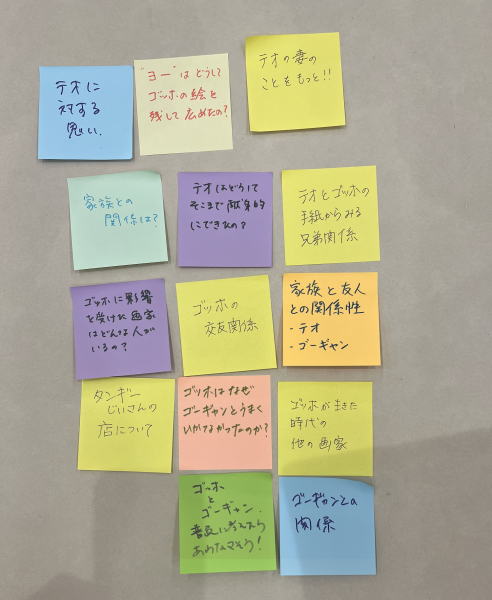 テオに
対する
思い、
"ヨー"はどうして
ゴッホの絵を
残して広めたの?
テオの妻の
ことをもっと!!
家族との
関係は?
テオはどうして
そこまで献身的
にできたの?
テオとゴッホの
手紙からみる
兄弟関係
ゴッホに影響
を受けた画家
はどんな人が
いるの?
ゴッホの
交友関係
家族と友人
との関係性
・テオ
・ゴーギャン
タンギー
じいさんの
店について
ゴッホはなぜ
ゴーギャンとうまく
いかなかったのか?
ゴッホが生きた
時代の
他の画家
ゴッホ
と
ゴーギャン.
普通に考えたら
あわなそう!
ゴーギャンとの
関係